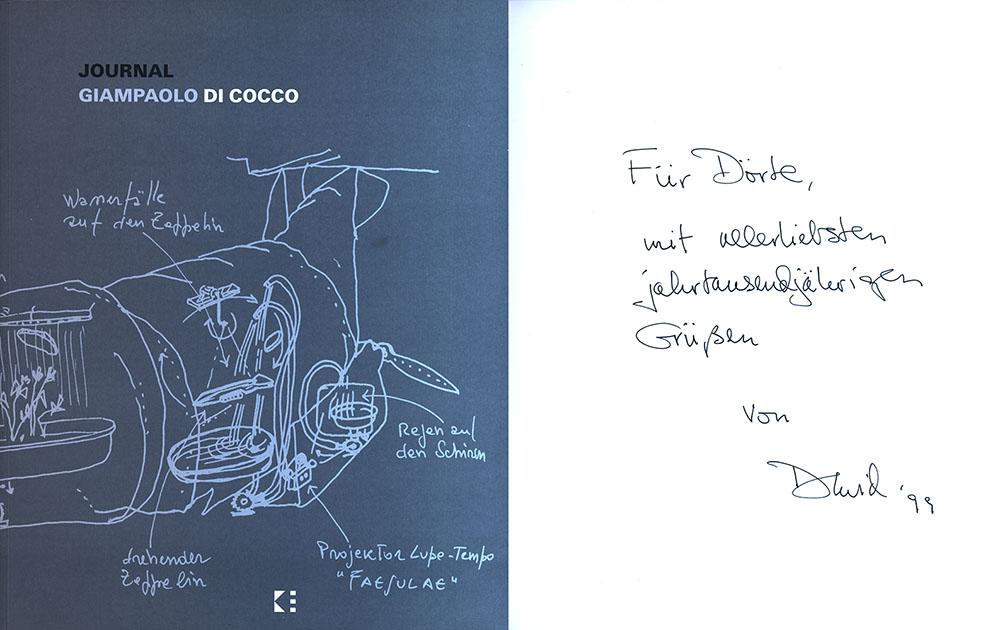 JOURNAL
GIAMPAOLO DI COCCO
Wasserfälle
auf den Zeppelin
Regen auf
den Schirm
drehender
Zeppelin
Projektor Lupe-Tempo
"FAESULAE"
Für Dörte,
mit allerliebsten
jahrtausendjährigen
Grüßen
von
David '99